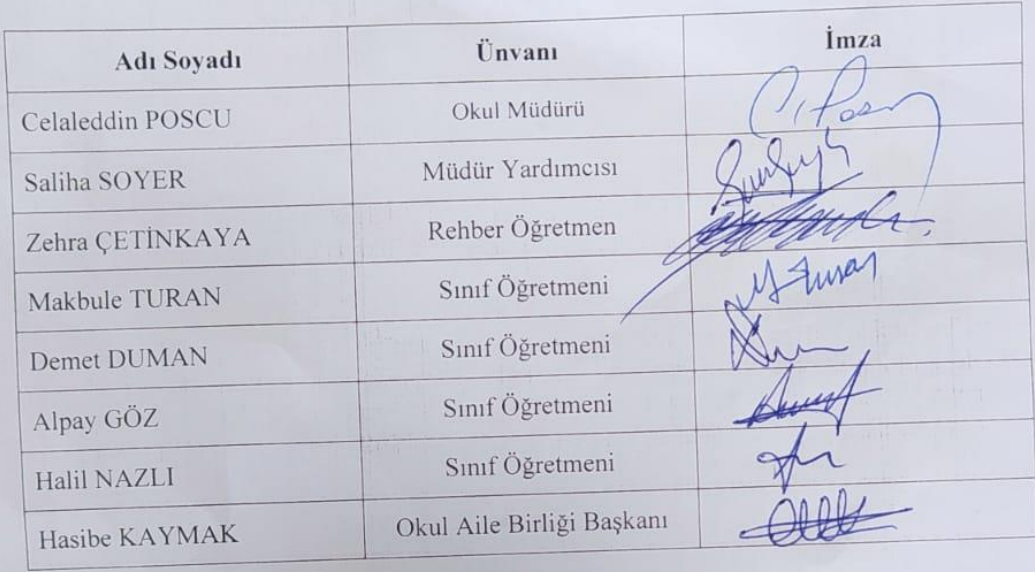 Adı Soyadı Ünvanı İmza
Celaleddin POSCU Okul Müdürü
Saliha SOYER Müdür Yardımcısı
Zehra ÇETİNKAYA Rehber Öğretmen
Makbule TURAN Sınıf Öğretmeni
Demet DUMAN Sınıf Öğretmeni
Alpay GÖZ Sınıf Öğretmeni
Halil NAZLI Sınıf Öğretmeni
Hasibe KAYMAK Okul Aile Birliği Başkanı